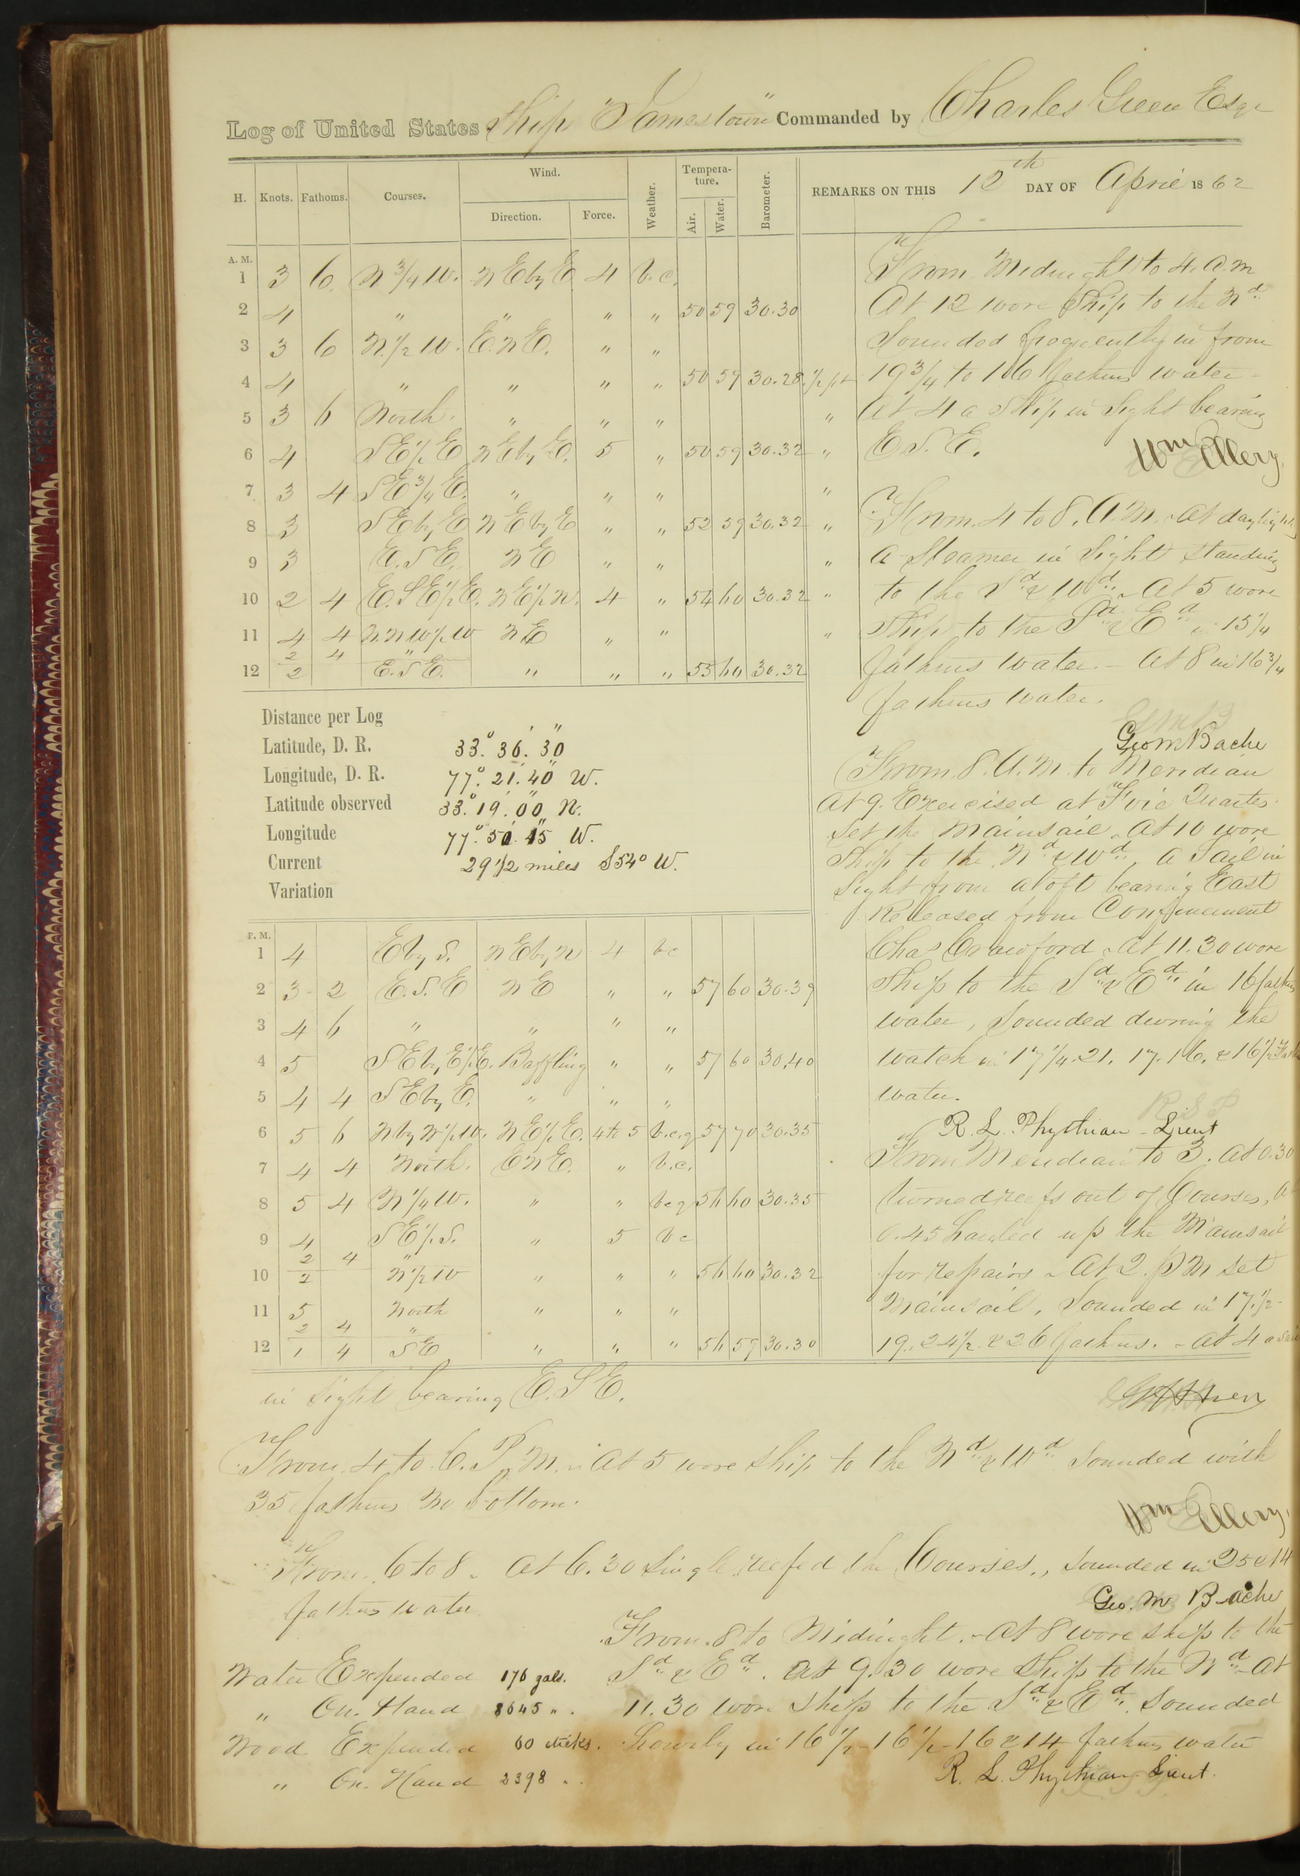 Log of United States Ship "Jamestown" Commanded by Charles Green Esqr
H. Knots. Fathoms. Courses. Wind. Direction. Force. Weather. Tempera-ture. Air. Water. Barometer. REMARKS ON THIS 12th DAY OF April 1862
A. M.
1 3 6 N 3/4 W. N E by E 4 b.c.
2 4 " " " " 50 59 30.30
3 3 6 N. 1/2 W. E. N E. " "
4 4 " " " " 50 59 30.28 1/2 pt
5 3 6 North. " " " "
6 4 S E 1/2 E N E by E. 5 " 50 59 30.32 "
7 3 4 S E 3/4 E. " " " "
8 3 S E by E N E by E " " 52 59 30.32 "
9 3 E. S E. N E " " "
10 2 4 E. S E 1/2 E. N E 1/2 N. 4 " 54 60 30.32 "
11 4 4 N N W 1/2 W N E " " "
12 2 4 "
2 E. S E. " " " 55 60 30.32
From Midnight to 4 a.m
At 12 wore Ship to the Nd.
Sounded frequently in from
19 3/4 to 16 fathms water -
At 4 a Ship in Sight bearing
E S. E.
Wm Ellery.
From 4 to 8. A. M. At daylight
a Steamer in Sight standing
to the Sd & Wd. At 5 wore
Ship to the Sd & Ed in 15 1/4
fathms water. - At 8 in 16 3/4
fathms water.
Geo M Bache
From 8. A. M. to Meridian
At 9. Exercised at Fire Quarters.
Set the Mainsail. At 10 wore
Ship to the Nd & Wd. a Sail in
Sight from aloft bearing East
Released from Confinement
Chas Crawford. At 11.30 wore
Ship to the Sd & Ed in 16 fathms
water, Sounded during the
watch in 17 1/4. 21. 17. 16. & 16 1/2 Fathms
water.
R. L. Phythian - Lieut
Distance per Log
Latitude, D. R. 33.° 36.' 30"
Longitude, D. R. 77.° 21.' 40" W.
Latitude observed 33.° 19.' 00" N.
Longitude 77.° 50.' 45" W.
Current 29 1/2 miles S 54° W.
Variation
P. M.
1 4 E by S. N E by N 4 bc
2 3 2 E. S. E N E " " 57 60 30.39
3 4 6 " " " "
4 5 S E by E 1/2 E. Baffling " " 57 60 30.40
5 4 4 S E by E. " " "
6 5 6 N by W 1/2 W. N E 1/2 E. 4 to 5 b.c.q 57 70 30.35
7 4 4 North. E N E. " b.c.
8 5 4 N 1/4 W. " " bcq 56 60 30.35
9 4 S E 1/2 S. " 5 bc
10 2 4 "
2 N 1/2 W " " " 56 60 30.32
11 5 North " " "
12 2 4 "
1 4 S E " " " 56 59 30.30
From Meridian to 3. At 0.30
turned reefs out of Courses, At
0.45 hauled up the Mainsail
for repairs - At 2. P M Set
Mainsail, Sounded in 17 1/2 -
19. 24 1/2 & 26 fathms. - At 4 a sail
in Sight bearing E. S E.
From 4 to 6. P. M. - At 5 wore ship to the Nd & Wd Sounded with
35 fathms no bottom.
Wm Ellery.
From 6 to 8. At 6.30 Single reefed the Courses., Sounded in 25 & 14
fathms water
Geo. M. Bache
From 8 to Midnight. - At 8 wore ship to the
Sd & Ed. At 9.30 wore Ship to the Nd - At
11.30 wore Ship to the Sd & Ed. Sounded
hourly in 16 1/2 - 16 1/2 - 16 & 14 fathms water
R. L. Phythian Lieut.
Water Expended 176 gals.
" On Hand 8645 " .
Wood Expended 60 sticks.
" On Hand 2398 . .